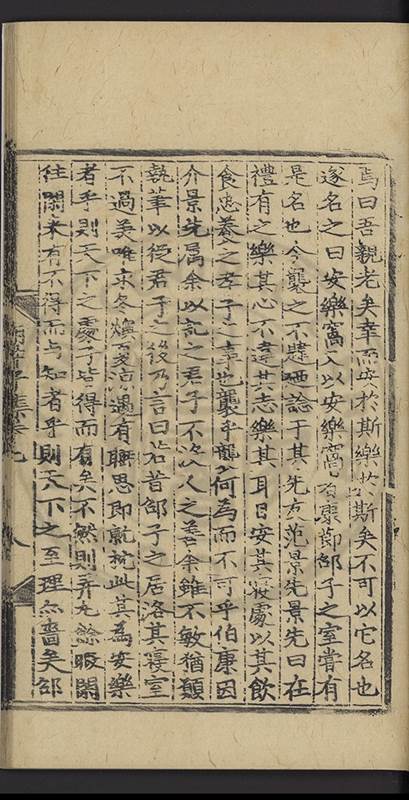 焉曰吾親老矣幸而安於斯樂於斯矣不可以它名也
遂名之曰安樂窩人以安樂窩有康節邵子之室嘗有
是名也今襲之不韙廼諗于其先友范景先景先曰在
禮有之樂其心不違其志樂其耳目安其寢處以其飲
食忠養之孝子之事也襲乎襲何為而不可乎伯康因
介景先屬余以記之君子不沒人之善余雖不敏猶願
執筆以從君子之後乃言曰若昔邵子之居洛其寢室
不過美唯求冬燠夏涼遇有睡思即就枕此其為安樂
者乎則天下之處子皆得而有矣不然則弄丸餘暇閑
往閑來有不得而与知者乎則天下之至理亦嗇矣邵
集卷九